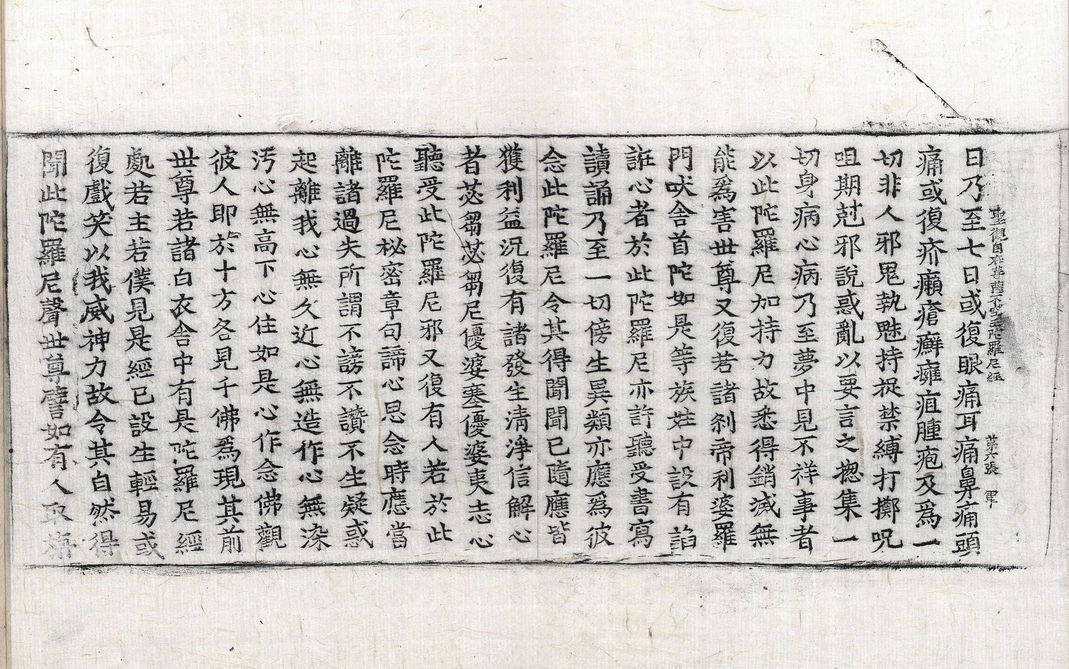 日乃至七日或復眼痛耳痛鼻痛頭
聖觀自在菩薩不空王陀羅尼經 第六張 軍
痛或復疥癩瘡癬癰疽腫疱及爲一
切非人邪鬼執魅持捉禁縛打擲呪
咀期尅邪說惑亂以要言之揔集一
切身病心病乃至夢中見不祥事者
以此陀羅尼加持力故悉得銷滅無
能爲害世尊又復若諸刹帝利婆羅
門吠舍首陀如是等族姓中設有諂
誑心者於此陀羅尼亦許聽受書寫
讀誦乃至一切傍生異類亦應爲彼
念此陀羅尼令其得聞聞已隨應皆
獲利益況復有諸發生淸淨信解心
者苾芻苾芻尼優婆塞優婆夷志心
聽受此陀羅尼邪又復有人若於此
陀羅尼秘密章句諦心思念時應當
離諸過失所謂不謗不讚不生疑惑
起離我心無久近心無造作心無染
汚心無高下心住如是心作念佛觀
彼人即於十方各見千佛爲現其前
世尊若諸白衣舍中有是陀羅尼經
處若主若僕見是經已設生輕易或
復戲笑以我威神力故令其自然得
聞此陀羅尼聲世尊譬如有人取栴